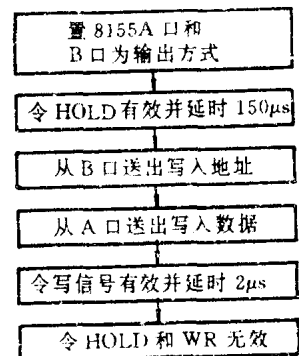 置 8155A 口和
B 口为输出方式
令 HOLD 有效并延时 150μs
从 B 口送出写入地址
从 A 口送出写入数据
令写信号有效并延时 2μs
令 HOLD 和 WR 无效